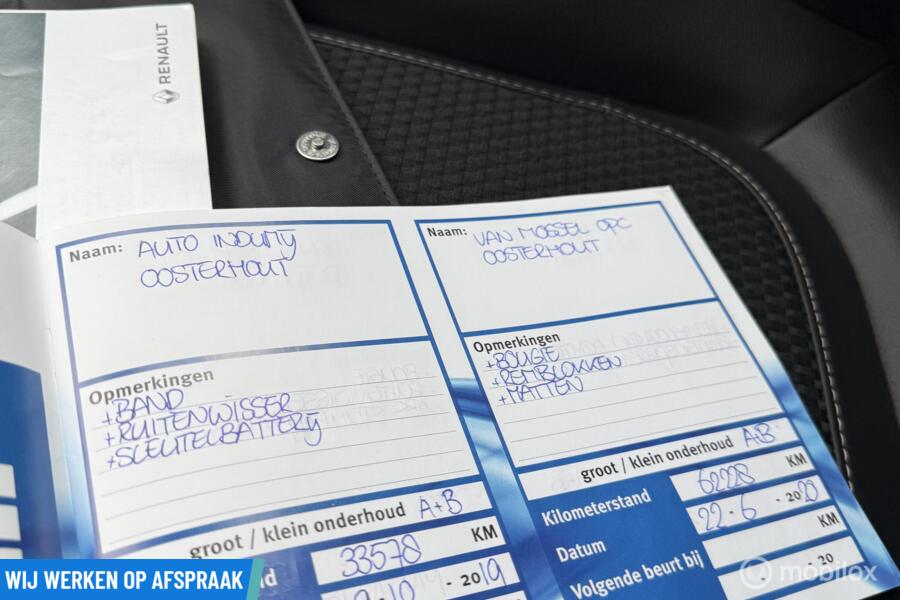 RENAULT
Naam: AUTO INDUMIJ
OOSTERHOUT
Opmerkingen
+BAND
+RUITENWISSER
+SLEUTELBATTERIJ
groot / klein onderhoud A+B
33578 KM
-10 - 2019
Naam: VAN MOSSEL OPC
OOSTERHOUT
Opmerkingen
+BOUGIE
+REMBLOKKEN
+MATTEN
groot / klein onderhoud A+B
Kilometerstand 62228 KM
Datum 22-6 - 2020
Volgende beurt bij KM
- - 20
WIJ WERKEN OP AFSPRAAK
mobilox